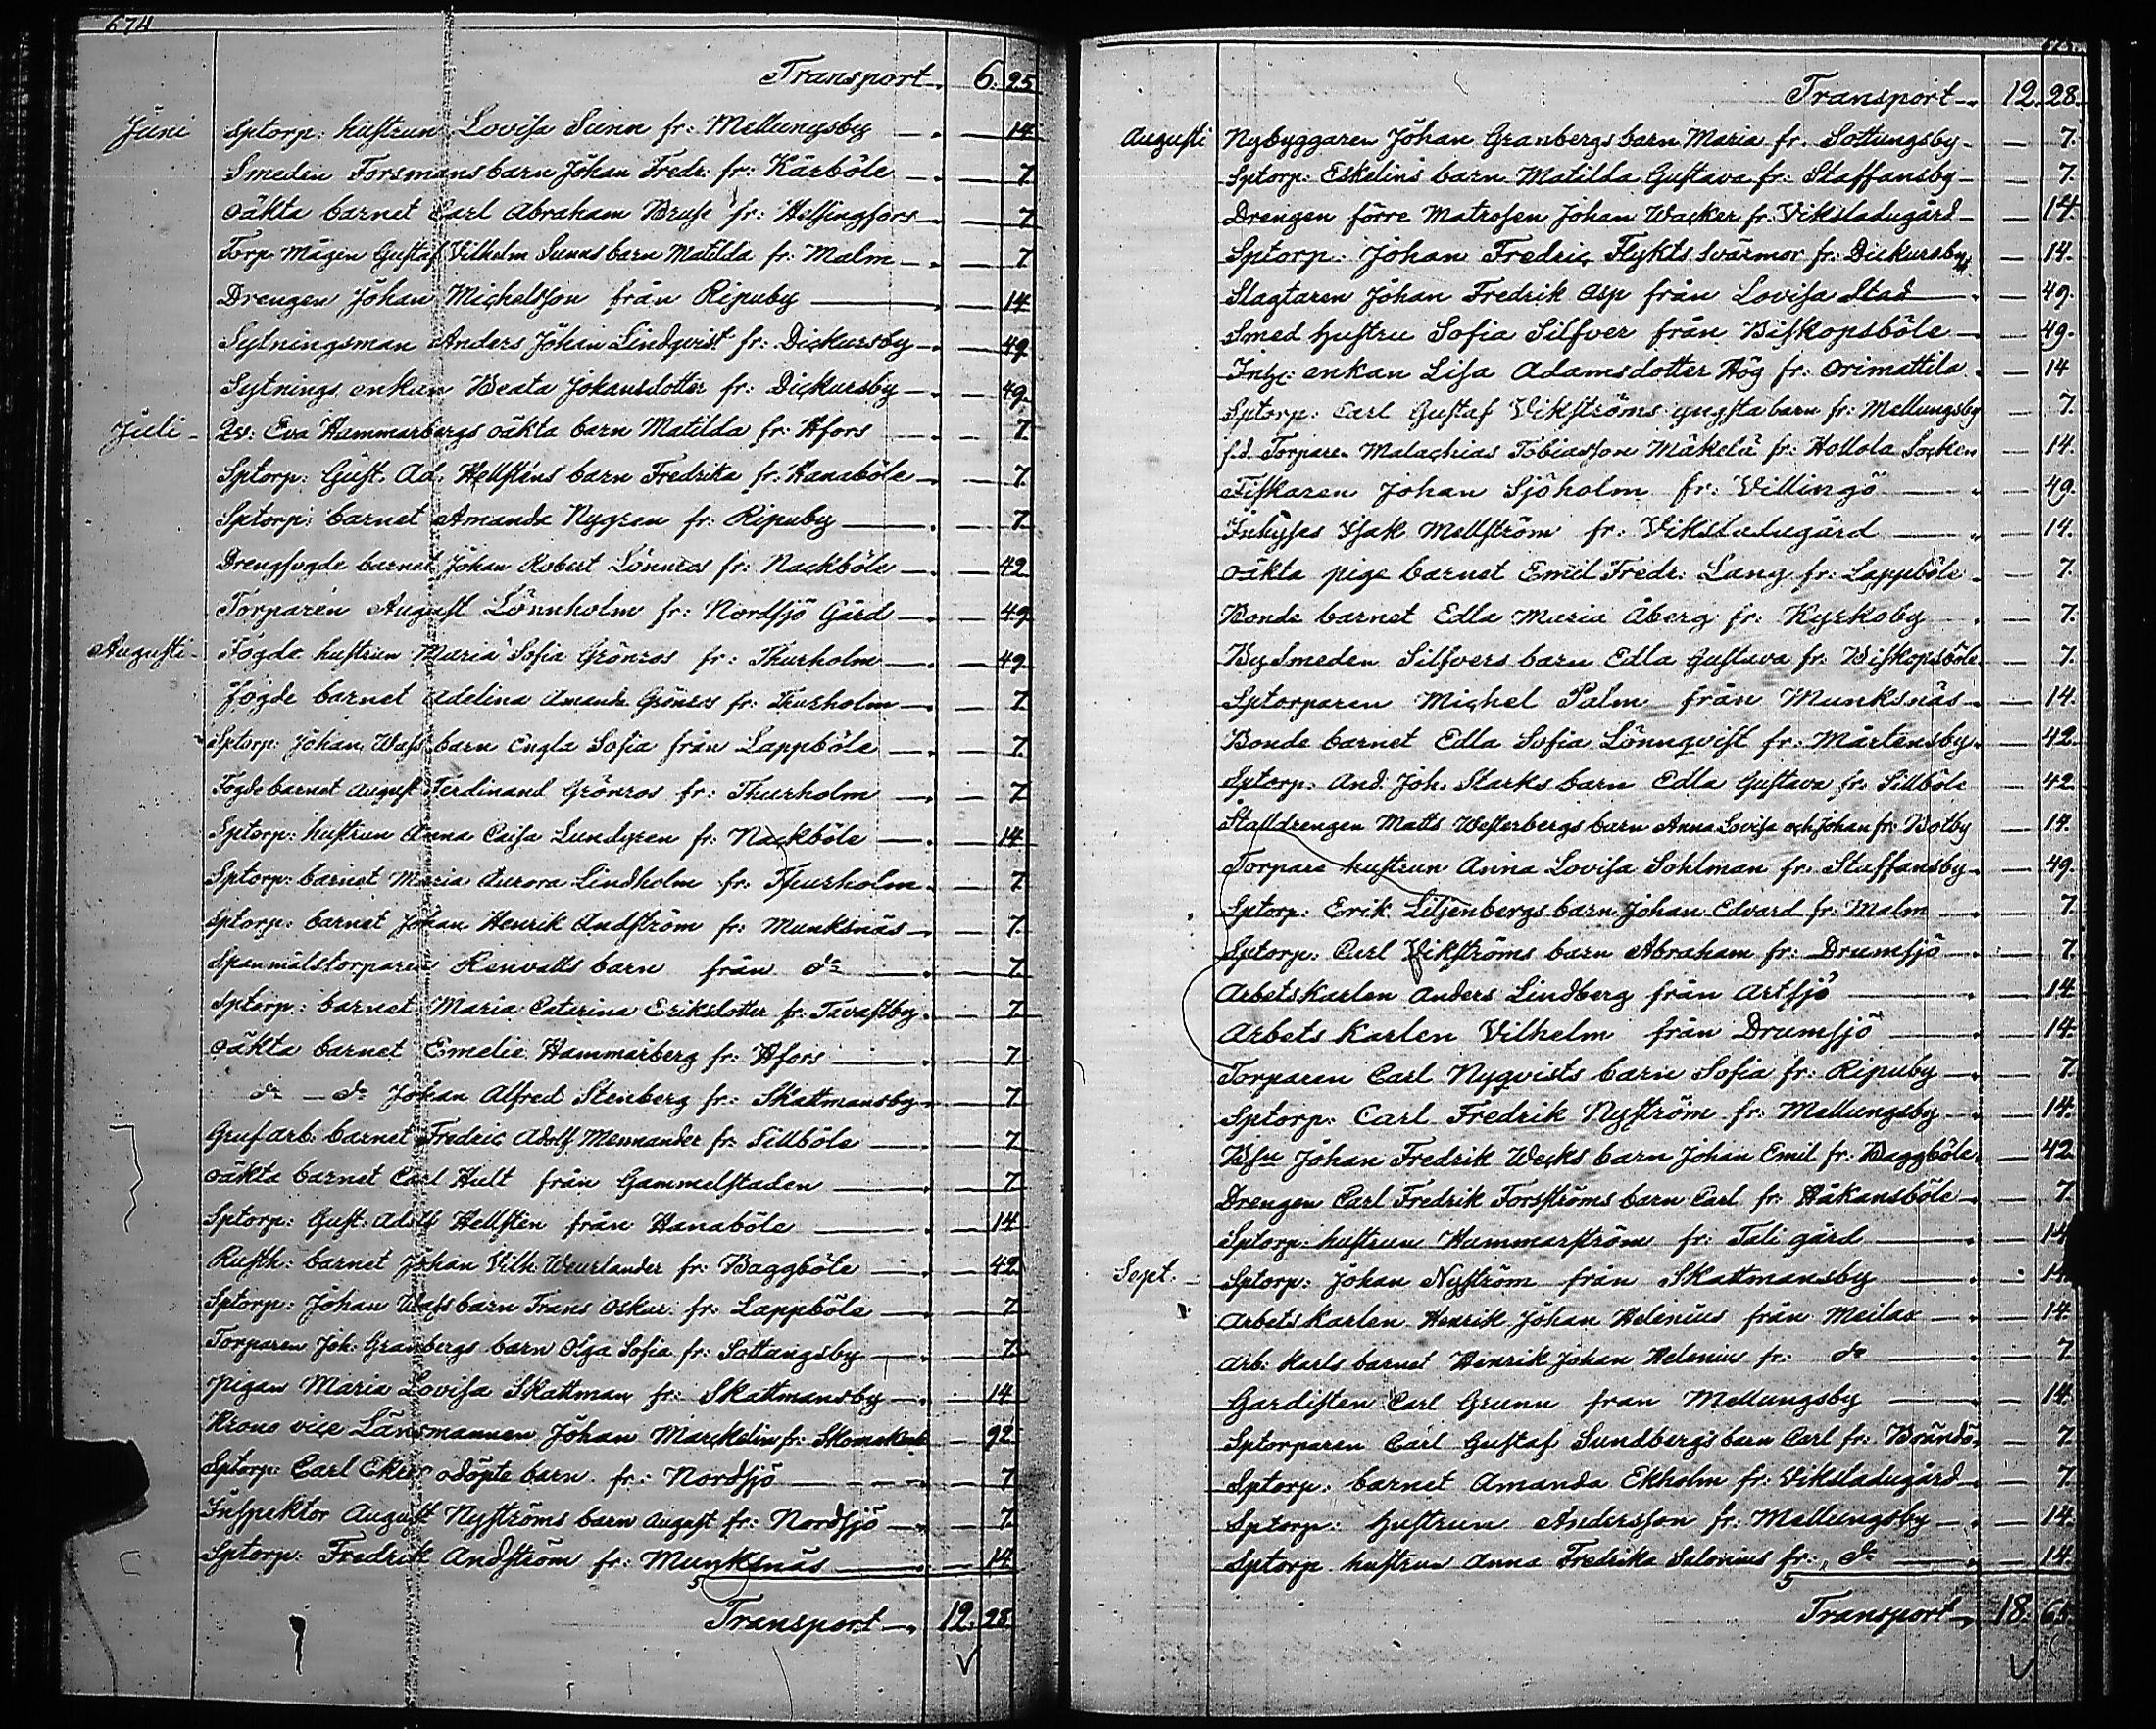 674
Transport 6. 25
Juni Sptorp: hustrun Lovisa Sunn fr: Mellungsby — 14
Smeden Forsmans barn Johan Fredr. fr: Kårböle — 7
Oäkta barnet Carl Abraham Bruse fr: Helsingfors — 7
Torp Mågen Gustaf Vilhelm Sunns barn Matilda fr: Malm — 7
Drengen Johan Michelsson från Ripuby — 14
Sytningsman Anders Johan Lindqvist fr: Dickursby — 49
Sytnings enkan Beata Johansdotter fr: Dickursby — 49
Juli Qv: Eva Hammarbergs oäkta barn Matilda fr: Hfors — 7
Sptorp: Gust. Ad. Hellstens barn Fredrika fr: Hanaböle — 7
Sptorp: barnet Amanda Nygren fr: Ripuby — 7
Drengfogde barnet Johan Robert Lönnros fr: Nackböle — 42
Torparen August Lönnholm fr: Nordsjö Gård — 49
Augusti Fogde hustrun Maria Sofia Grönros fr: Thurholm — 49
Fogde barnet Adelina Amanda Grönros fr: Thurholm — 7
Sptorp: Johan Wass barn Engla Sofia från Lappböle — 7
Fogdebarnet August Ferdinand Grönros fr: Thurholm — 7
Sptorp: hustrun Anna Caisa Lundgren fr: Nackböle — 14
Sptorp: barnet Maria Aurora Lindholm fr: Thurholm — 7
Sptorp: barnet Johan Henrik Andström fr: Munksnäs — 7
Spanmålstorparen Renvalls barn från do — 7
Sptorp: barnet Maria Catarina Eriksdotter fr: Tavastby — 7
oäkta barnet Emelie Hammarberg fr: Hfors — 7
do — do Johan Alfred Stenberg fr: Skattmansby — 7
Grufarb: barnet Fredric Adolf Mennander fr: Sillböle — 7
oäkta barnet Carl Hult från Gammelstaden — 7
Sptorp: Gust: Adolf Hellsten från Hanaböle — 14
Rusth: barnet Johan Vilh: Weurlander fr: Baggböle — 42
Sptorp: Johan Wass barn Frans Oskar fr: Lappböle — 7
Torparen Joh: Granbergs barn Olga Sofia fr: Sottungsby — 7
Pigan Maria Lovisa Skattman fr: Skattmansby — 14
Krono vice Länsmannen Johan Marckelin fr: — 92
Sptorp: Carl odöpte barn fr: Nordsjö — 7
Inspektor August Nyströms barn August fr: Nordsjö — 7
Sptorp: Fredrik Andström fr: Munksnäs — 14
Transport 12. 28
Transport 12. 28
Augusti Nybyggaren Johan Granbergs barn Maria fr. Sottungsby — 7.
Sptorp: Eskelins barn Matilda Gustava fr: Staffansby — 7
Drengen förre Matrosen Johan Wacker fr: Viksladugård — 14
Sptorp: Johan Fredric Flykts Svärmor fr: Dickursby — 14.
Slagtaren Johan Fredrik Asp från Lovisa Stad — 49.
Smed hustru Sofia Silfver från Biskopsböle — 49.
Inhs: enkan Lisa Adamsdotter Hög fr: Orimattila — 14
Sptorp: Carl Gustaf Vikströms yngsta barn fr: Mellungsby — 7.
f.d. Torparen Malachias Tobiasson Mäkelä fr: Hollola Socken — 14.
Fiskaren Johan Sjöholm fr: Villingö — 49.
Inhyses Isak Mellström fr: Viksladugård — 14.
Oäkta pige barnet Emil Fredr: Lang fr: Lappböle — 7.
Bonde barnet Edla Maria Åberg fr: Kyrkoby — 7.
By Smeden Silfvers barn Edla Gustava fr: Biskopsböle — 7.
Sptorparen Michel Palm från Munksnäs — 14.
Bonde barnet Edla Sofia Lönnqvist fr: Mårtensby — 42.
Sptorp: And. Joh. Starks barn Edla Gustava fr: Sillböle — 42
Stalldrengen Matts Westerbergs barn Anna Lovisa och Johan fr: Botby — 14.
Torpare hustrun Anna Lovisa Sohlman fr: Staffansby — 49.
Sptorp: Erik Liljenbergs barn Johan Edvard fr: Malm — 7.
Sptorp: Carl Vikströms barn Abraham fr: Drumsjö — 7.
Arbetskarlen Anders Lindberg från Artsjö — 14
Arbets karlen Vilhelm från Drumsjö — 14.
Torparen Carl Nyqvists barn Sofia fr: Ripuby — 7
Sptorp: Carl Fredrik Nyström fr: Mellungsby — 14.
Johan Fredrik Wecks barn Johan Emil fr: Baggböle — 42
Drengen Carl Fredrik Forsströms barn Carl fr: Håkansböle — 7
Sptorp: hustrun Hammarström fr: Tali gård — 14
Sept. Sptorp: Johan Nyström från Skattmansby — 14
Arbetskarlen Henrik Johan Helenius från Meilax — 14.
Arb: karls barnet Henrik Johan Helenius fr: do — 7
Gardisten Carl Grunn från Mellungsby — 14.
Sptorparen Carl Gustaf Sundbergs barn Carl fr: Brändö — 7
Sptorp: barnet Amanda Ekholm fr: Viksladugård — 7
Sptorp: hustrun Andersson fr: Mellungsby — 14.
Sptorp. hustrun Anna Fredrika Salonius fr: do — 14.
Transport 18. 65